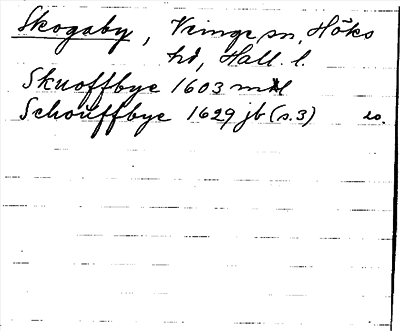 Skogaby, Veinge sn, Höks
hd, Hall. l.
Skuoffbye 1603 mtl
Schouffbye 1629 jb (s.3) so.